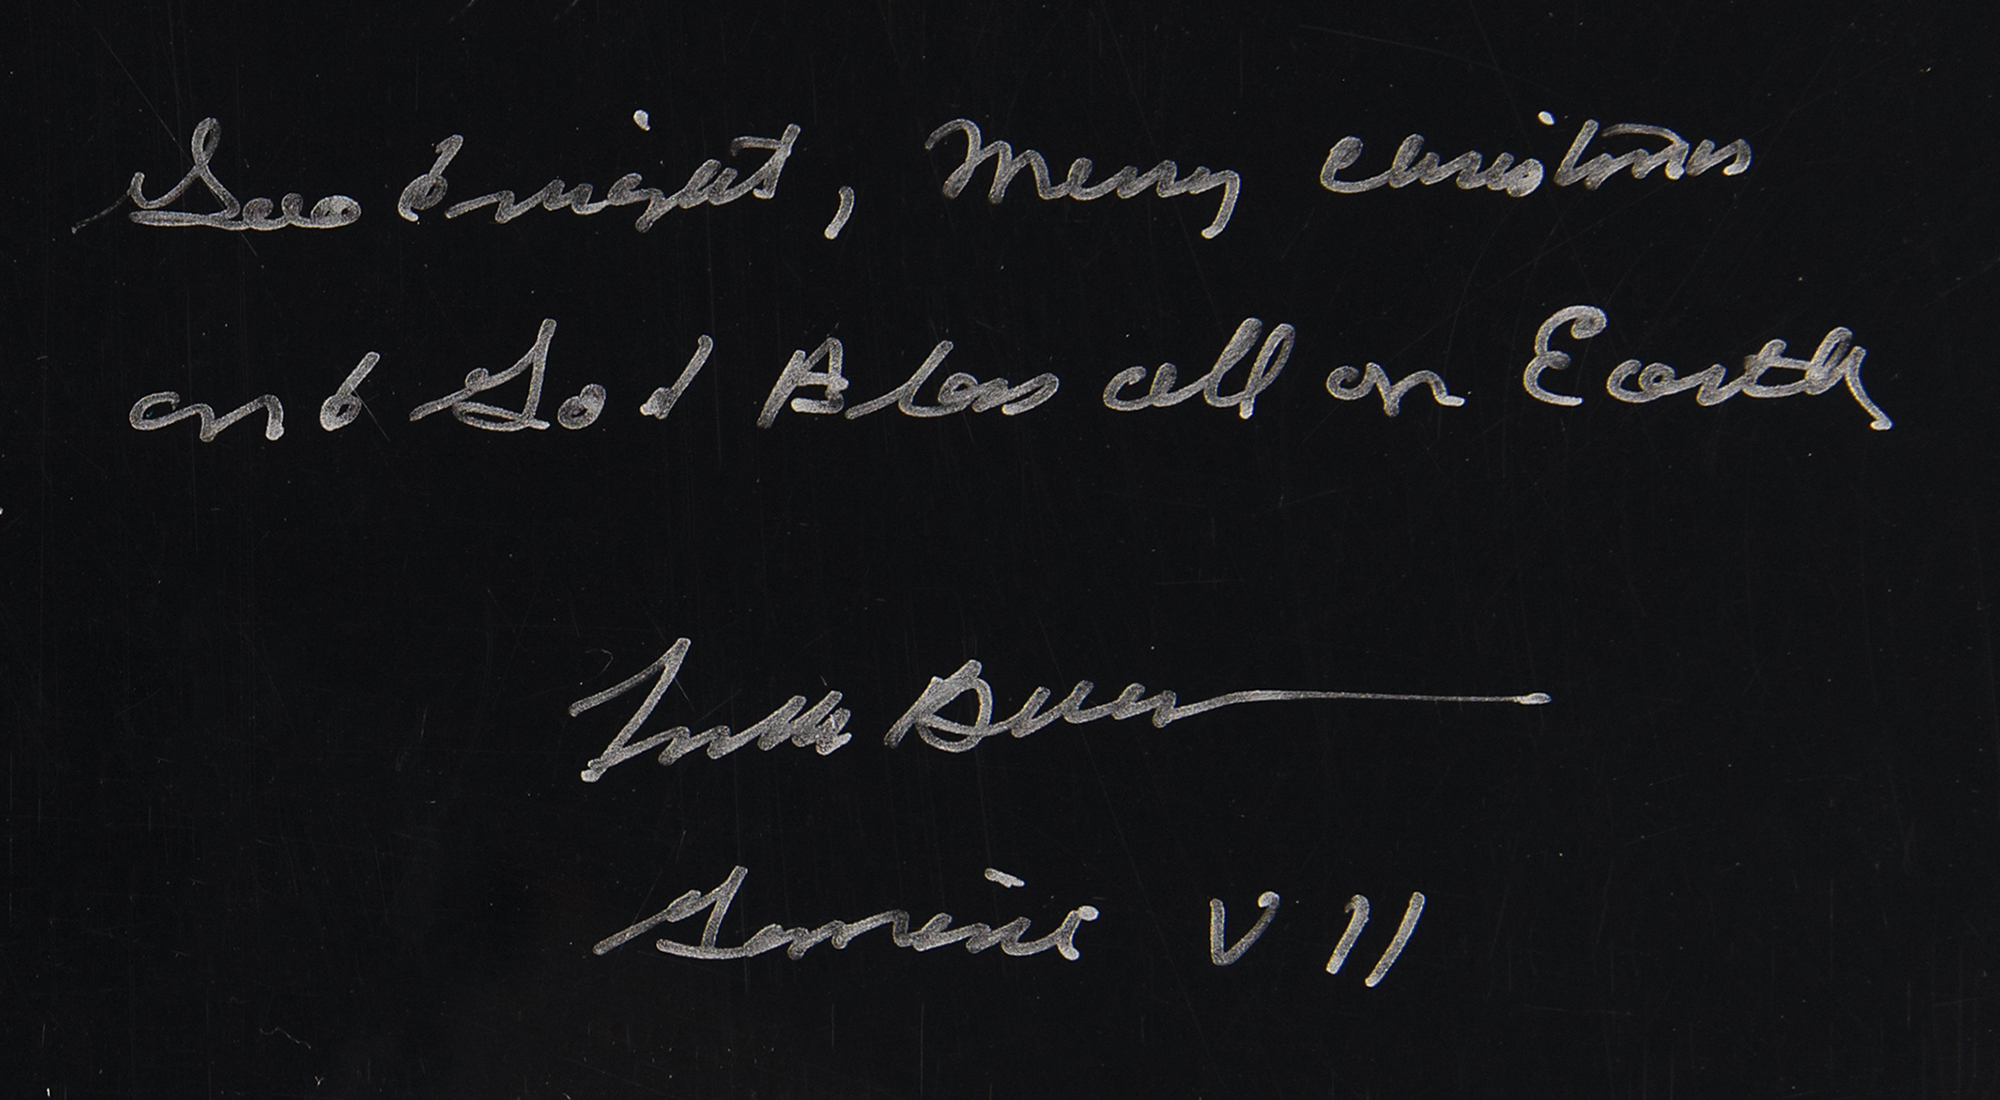 Goodnight, Merry christmas
and God Bless all on Earth
Frank Borman
Gemini VII